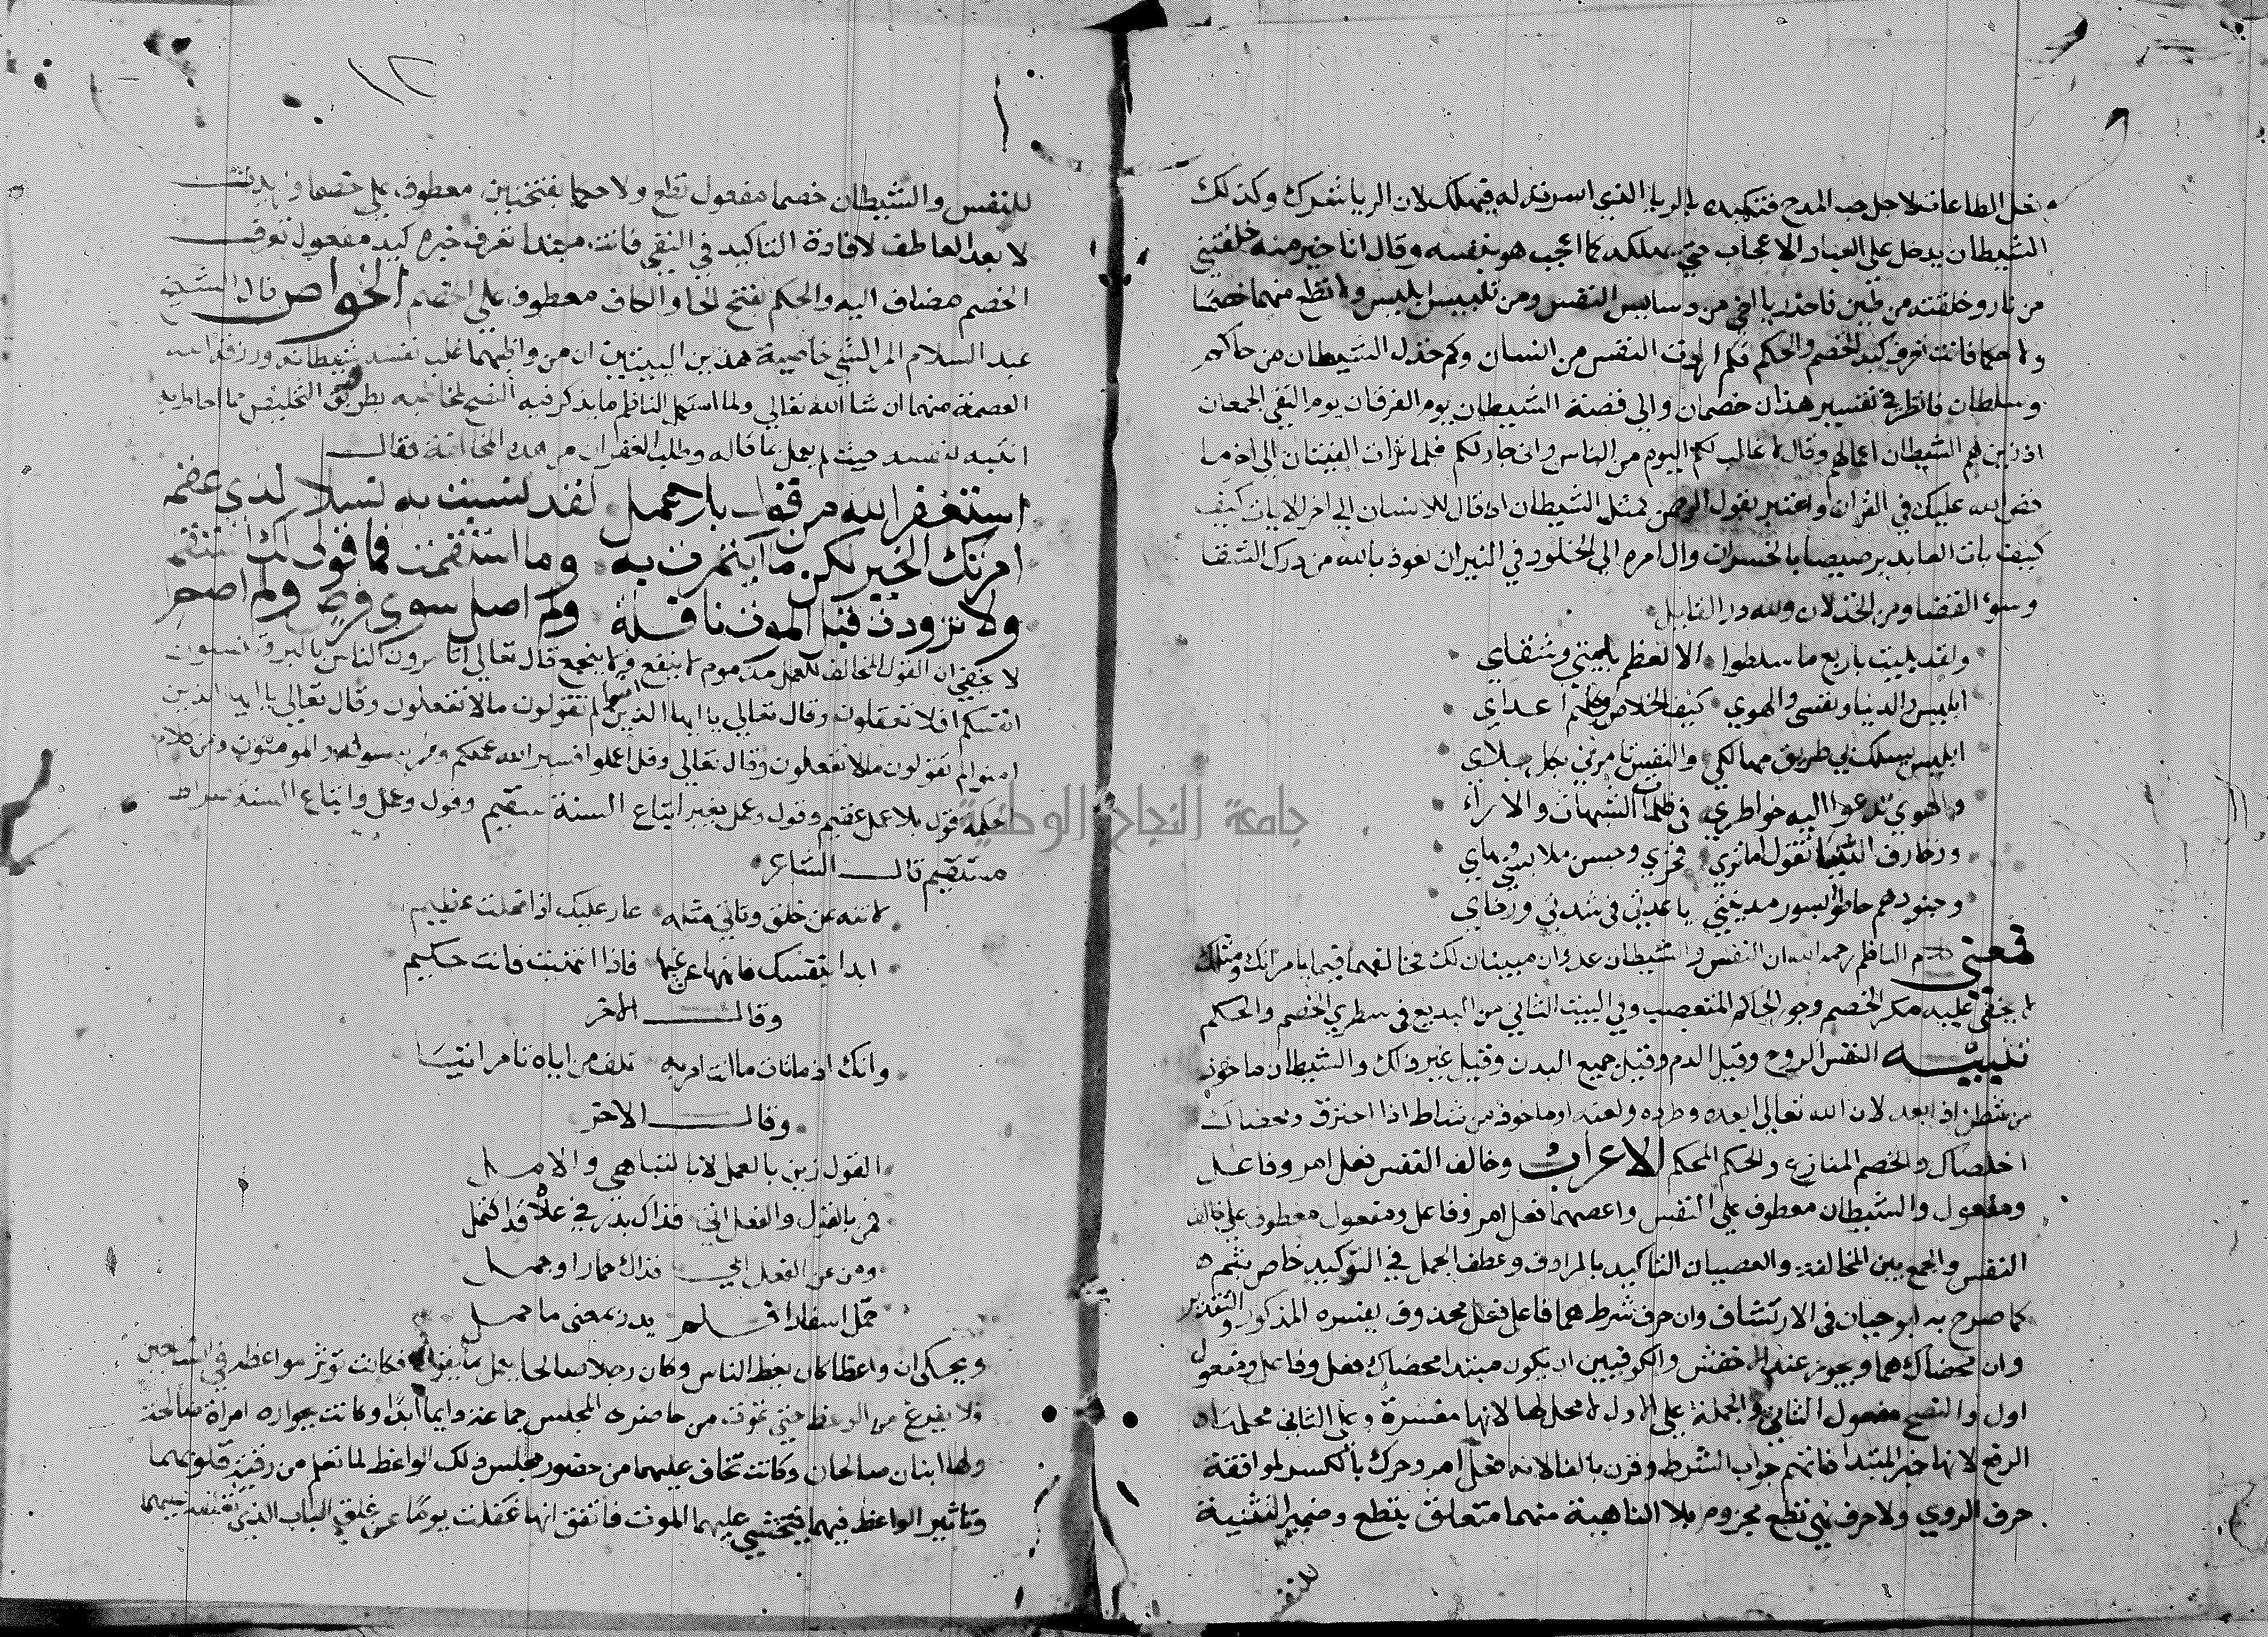 فعل الطاعات لاجل حب المدح فتكيده بالريا الذي اسررته له فيهلكك لان الريا شرك وكذلك
الشيطان يدخل على العباد الاعجاب حتى يهلكه كما اعجب هو بنفسه وقال انا خير منه خلقتني
من نار وخلقته من طين فاحذر يا اخي من دسايس النفس ومن تلبيس ابليس ولا تطع منهما خصما
ولا حكما فانت تعرف كيد الخصم والحكم فكم اهوت النفس من انسان وكم خذل الشيطان من حاكم
وسلطان فانظر في تفسير هذان خصمان والى قصة الشيطان يوم الفرقان يوم التقى الجمعان
اذ زين لهم الشيطان اعمالهم وقال لا غالب لكم اليوم من الناس واني جار لكم فلما تراءت الفئتان الى اخر ما
قص الله عليك في القران واعتبر بقول الرحمن كمثل الشيطان اذ قال للانسان الى اخر الايات كيف
كيف بات العابد برصيصا بالخسران وال امره الى الخلود في النيران نعوذ بالله من درك الشقا
وسوء القضا ومن الخذلان ولله در القايل
ولقد بليت باربع ما سلطوا الا لعظم بليتي وشقاي
ابليس والدنيا ونفسي والهوى كيف الخلاص وكلهم اعداي
ابليس يسلك بي طريق مهالكي والنفس تامرني بكل بلاي
والهوى تدعوا اليه خواطري في ظلمات الشبهات والاراء
وزخارف الدنيا تقول اما ترى فخري وحسن ملابسي وبهاي
وجنودهم حاطوا بسور مدينتي يا عدتي في شدتي ورخاي
فمعنى كلام الناظم رحمه الله ان النفس والشيطان عدوان مبينان لك فخالفهما فيما يامرانك ومثلك
لا يخفى عليه مكر الخصم وجور الحاكم المتعصب وفي البيت الثاني من البديع في سطري الخصم والحكم
تنبيه النفس الروح وقيل الدم وقيل جميع البدن وقيل غير ذلك والشيطان ماخوذ
من شطن اذا بعد لان الله تعالى ابعده وطرده ولعنه او ماخوذ من شاط اذا احترق ومحضاك
اخلصاك والخصم المنازع والحكم المحكم الاعراب وخالف النفس فعل امر وفاعل
ومفعول والشيطان معطوف على النفس واعصهما فعل امر وفاعل ومفعول معطوف على خالف
النفس والجمع بين المخالفة والعصيان التاكيد بالمرادف وعطف الجمل في التوكيد خاص بثم
كما صرح به ابو حيان في الارتشاف وان حرف شرط هما فاعل فعل محذوف يفسره المذكور والتقدير
وان محضاك هما ويجوز عند الاخفش والكوفيين ان يكون مبتدا محضاك فعل وفاعل ومفعول
اول والنصح مفعول الثاني والجملة على الاول لا محل لها لانها مفسرة وعلى الثاني محلها
الرفع لانها خبر المبتدا فاتهم جواب الشرط وقرن بالفا لانه فعل امر وحرك بالكسر لموافقة
حرف الروي ولا حرف نهي تطع مجزوم بلا الناهية منهما متعلق بتطع وضمير التثنية
للنفس
١٢
للنفس والشيطان خصما مفعول تطع ولا حكما بفتحتين معطوف على خصما وزيدت
لا بعد العاطف لافادة التاكيد في النفي فانت مبتدا تعرف خبره كيد مفعول تعرف
الخصم مضاف اليه والحكم بفتح الحا والكاف معطوف على الخصم الخواص قال الشيخ
عبد السلام المراكشي خاصية هذين البيتين ان من واظبهما غلب نفسه وشيطانه ورزقه الله
العصمة منهما ان شا الله تعالى ولما استعمل الناظم ما يذكر فيه النصح لمخاطبه بطريق التخليص مما احاط به
انتبه لنفسه حيث لم يعمل بما قاله وطلب الغفران من هذه المخالفة فقال
استغفر الله من قول بلا عمل لقد نسبت به نسلا لذي عقم
امرتك الخير لكن ما ائتمرت به وما استقمت فما قولي لك استقم
ولا تزودت قبل الموت نافلة ولم اصل سوى فرض ولم اصم
لا يخفى ان القول المخالف للعمل مذموم لا ينفع ولا ينجع قال تعالى اتامرون الناس بالبر وتنسون
انفسكم افلا تعقلون وقال تعالى يا ايها الذين امنوا لم تقولون ما لا تفعلون وقال تعالى يا ايها الذين
امنوا لم تقولون ما لا تفعلون وقال تعالى وقل اعملوا فسيرى الله عملكم ورسوله والمومنون ومن كلام
حكمه قول بلا عمل عقيم وقول وعمل بغير اتباع السنة سقيم وقول وعمل واتباع السنة صراط
مستقيم قال الشاعر
لا تنه عن خلق وتاتي مثله عار عليك اذا فعلت عظيم
ابدا بنفسك فانهها عن غيها فاذا انتهت فانت حكيم
وقال الاخر
وانك اذ ما تات ما انت امر به تلف من اياه تامر اتيا
وقال الاخر
القول زين بالعمل لا بالتباهي والامل
فمن بالقول والفعل اتى فذاك بدر في علاه قد اكتمل
ومن عن الفعل ابى فذاك حمار او جمل
حمل اسفارا فلم يدر بمعنى ما حمل
ويحكى ان واعظا كان يعظ الناس وكان رجلا صالحا يعمل بما يقول فكانت تؤثر مواعظه في السامعين
ولا يفرغ من الوعظ حتى يموت من حاضري المجلس جماعة دايما ابدا وكانت بجواره امراة صالحة
ولها ابنان صالحان وكانت تخاف عليهما من حضور مجلس ذلك الواعظ لما تعلم من رقة قلوبهما
وتاثير الواعظ فيهما فتخشى عليهما الموت فاتفق انها غفلت يوما عن غلق الباب الذي
جامعة النجاح الوطنية